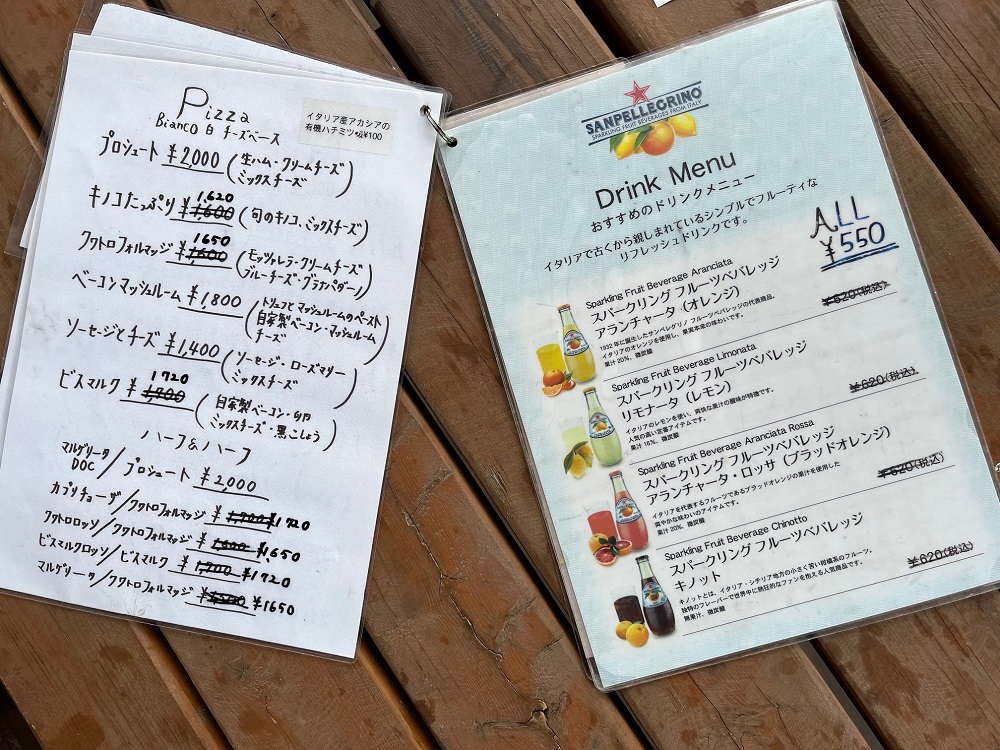 Pizza
Bianco 白 チーズベース
イタリア産アカシアの
有機ハチミツ
¥100
プロシュート ¥2,000 (生ハム・クリームチーズ
ミックスチーズ)
1,620
キノコたっぷり ¥1600 (旬のキノコ、ミックスチーズ)
1650
クワトロフォルマッジ (モッツァレラ・クリームチーズ
ブルーチーズ・グラナパダーノ)
ベーコンマッシュルーム ¥1,800 (トリュフとマッシュルームのペースト
自家製ベーコン・マッシュルーム
チーズ)
ソーセージとチーズ ¥1,400 (ソーセージ・ローズマリー
ミックスチーズ)
1720
ビスマルク ¥1,700 (自家製ベーコン・卵
ミックスチーズ・黒こしょう)
ハーフ&ハーフ
マルゲリータ
DOC / プロシュート ¥2,000
カプリチョーザ/クワトロフォルマッジ ¥1,700 ¥1720
クワトロロッソ/クワトロフォルマッジ ¥1,600 ¥1,650
ビスマルクロッソ/ビスマルク ¥1,700 ¥1720
マルゲリータ/クワトロフォルマッジ ¥1650
SANPELLEGRINO
SPARKLING FRUIT BEVERAGES FROM ITALY
Drink Menu
おすすめのドリンクメニュー
イタリアで古くから親しまれているシンプルでフルーティな
リフレッシュドリンクです。
ALL
¥550
Sparkling Fruit Beverage Aranciata
スパークリング フルーツベバレッジ
アランチャータ (オレンジ)
¥620(税込)
1932年に誕生したサンペレグリノ フルーツベバレッジの代表商品。
イタリアのオレンジを使用し、果実本来の味わいです。
果汁20%、微炭酸
Sparkling Fruit Beverage Limonata
スパークリング フルーツベバレッジ
リモナータ (レモン)
¥620(税込)
イタリアのレモンを使い、爽快な果汁の酸味が特徴です。
人気の高い定番アイテムです。
果汁16%、微炭酸
Sparkling Fruit Beverage Aranciata Rossa
スパークリング フルーツベバレッジ
アランチャータ・ロッサ (ブラッドオレンジ)
¥620(税込)
イタリアを代表するフルーツであるブラッドオレンジの果汁を使用した
爽やかな味わいのアイテムです。
果汁20%、微炭酸
Sparkling Fruit Beverage Chinotto
スパークリング フルーツベバレッジ
キノット
¥620(税込)
キノットとは、イタリア・シチリア地方の小さく苦い柑橘系のフルーツ。
独特のフレーバーで世界中に熱狂的なファンを抱える人気商品です。
無果汁、微炭酸